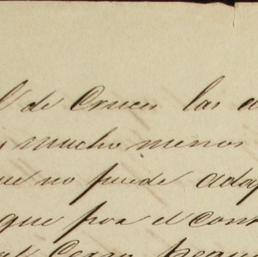 de Cruces las
mucho menos
no puede adop
que por el cont
Cerro